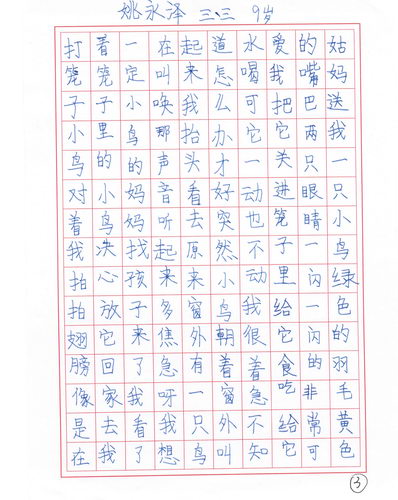 姚永泽 三.三 9岁
姑妈送我一只小鸟绿色的羽毛黄色
的嘴巴两只眼睛一闪一闪的非常可
爱我把它关进笼子里给它食吃给它
水喝可它一动也不动我很着急不知
道怎么办才好突然小鸟朝着窗外叫
起来我抬头看去原来窗外有一只鸟
在叫唤那声音听起来多焦急呀我想
一定小鸟的妈妈找孩子来了我看了
着笼子里的小鸟决心放它回家去我
打笼子小鸟对着我拍拍翅膀像是在
3